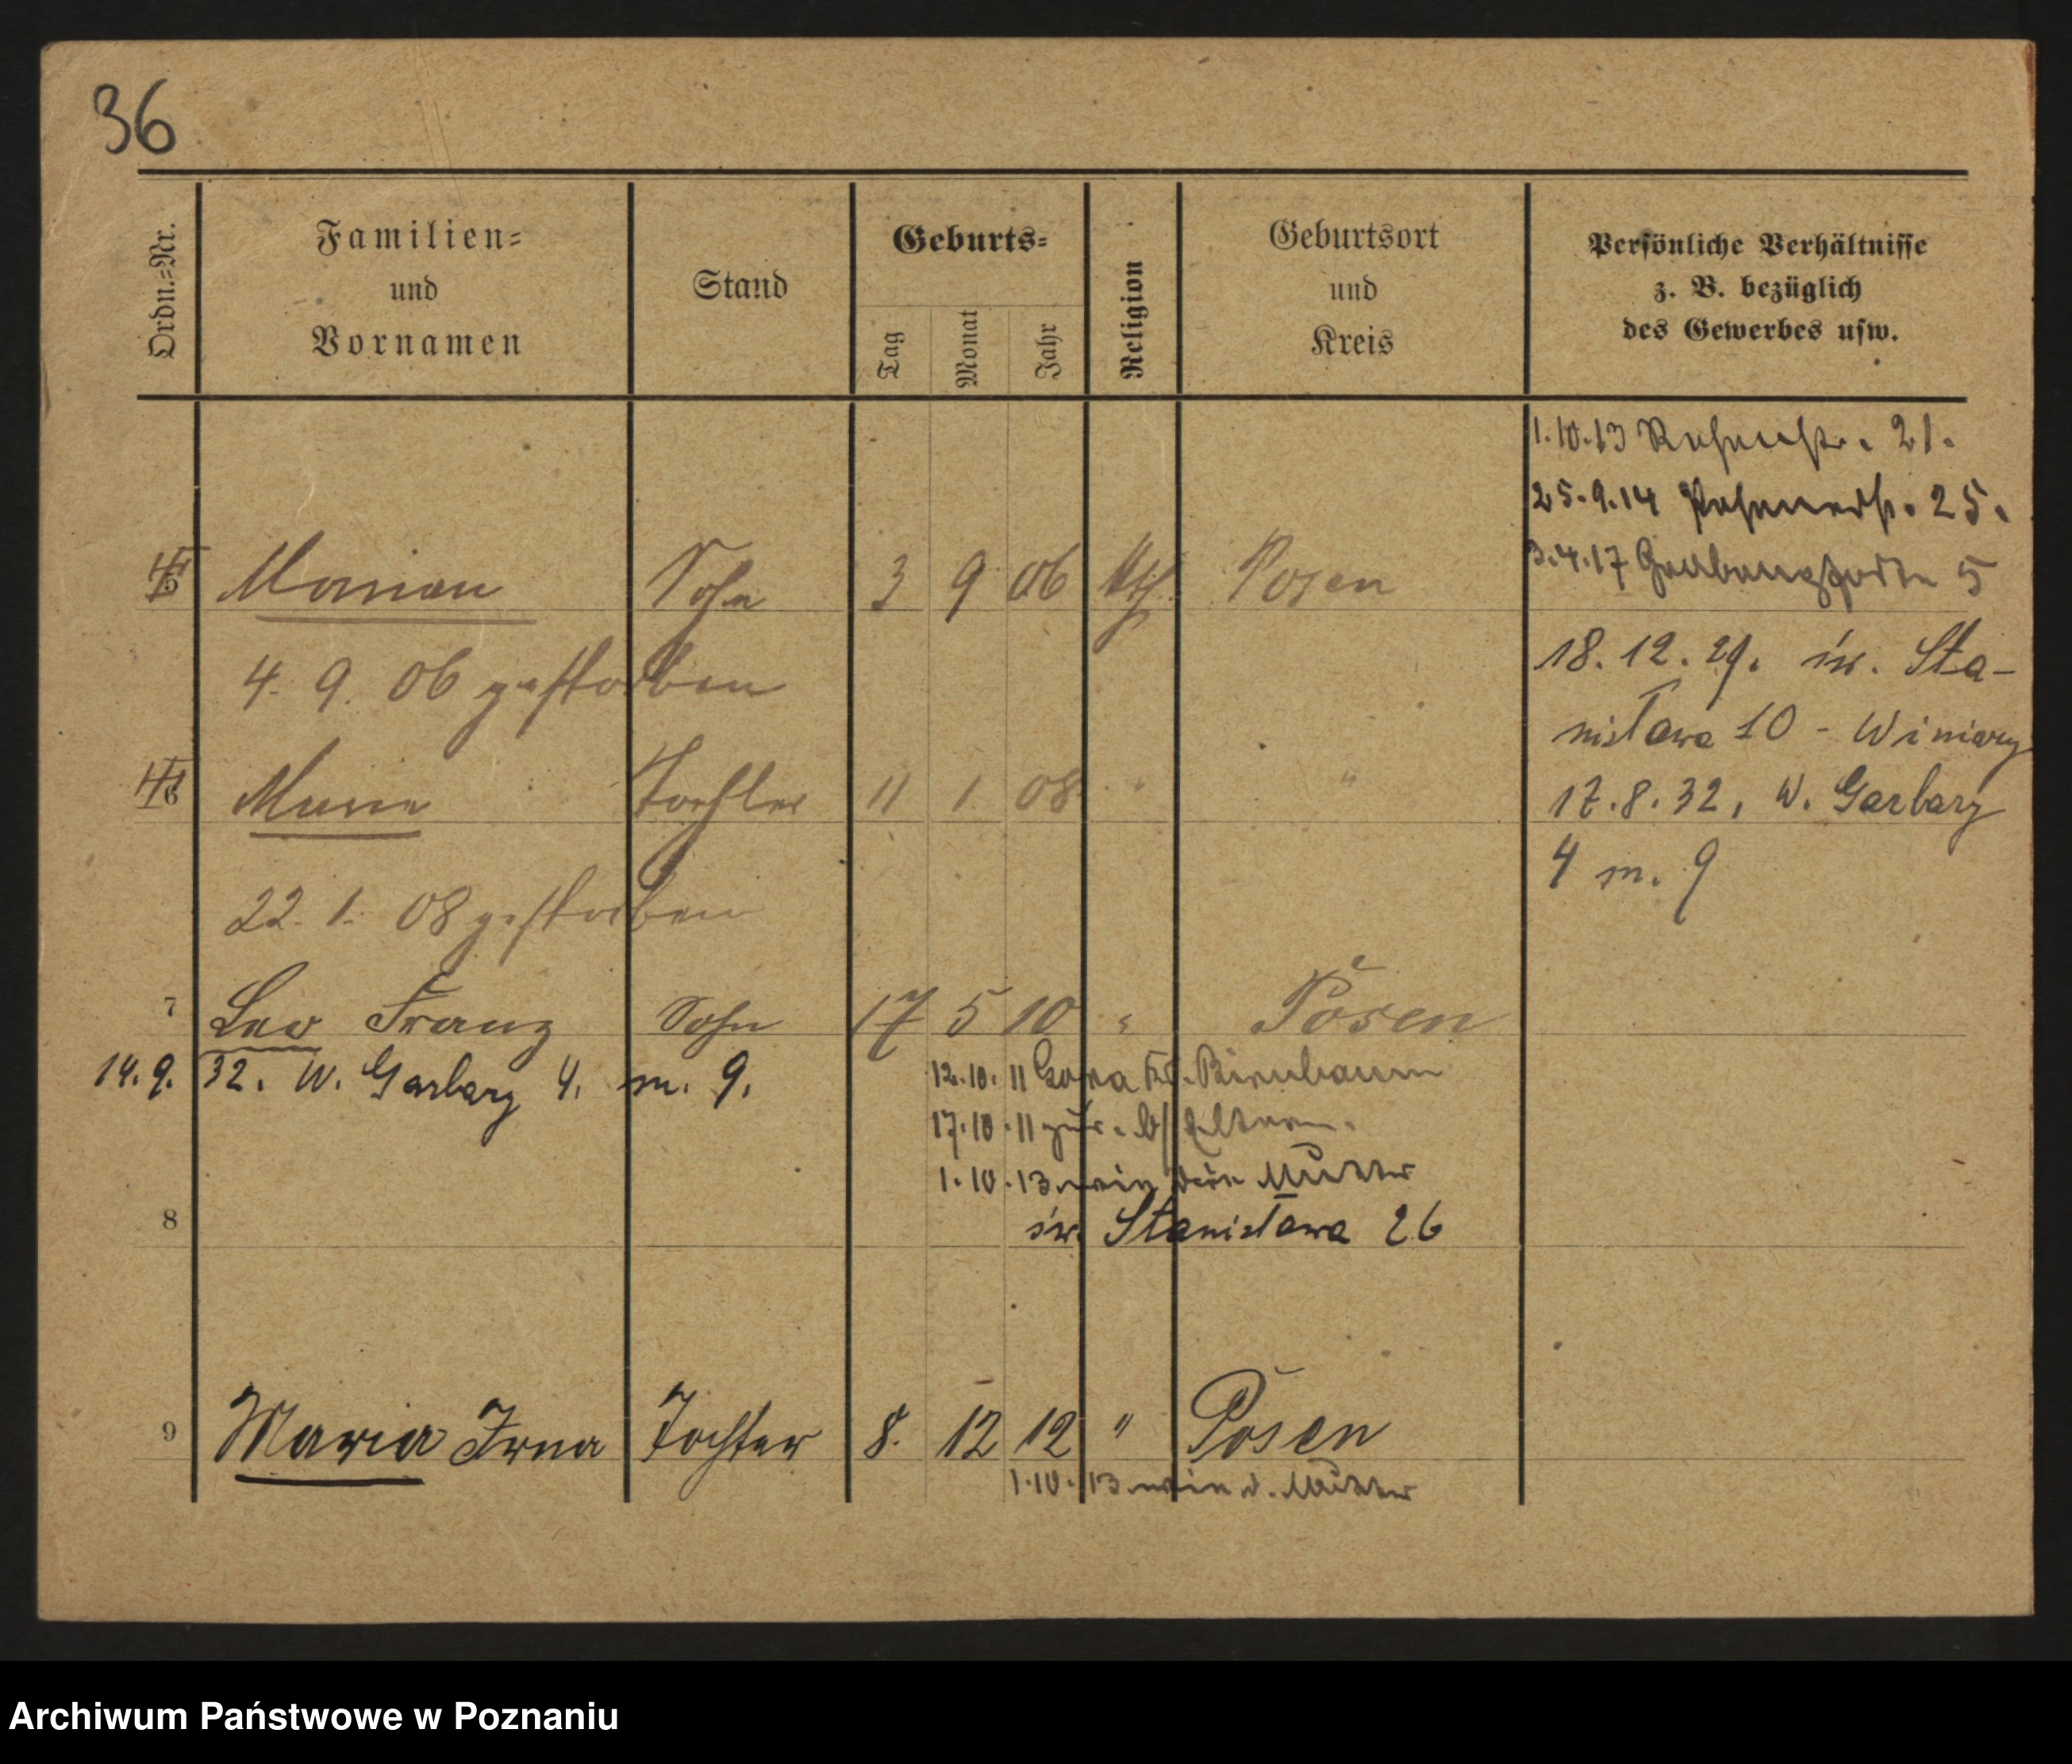 36
Ordn.=Nr.
Familien=
und
Vornamen
Stand
Geburts=
Tag
Monat
Jahr
Religion
Geburtsort
und
Kreis
Persönliche Verhältnisse
z. B. bezüglich
des Gewerbes usw.
1.10.13 21.
25.9.14 25.
3.4.17 Grabenpforte 5
5 Marian Sohn 3 9 06 kth. Posen
4. 9. 06 gestorben
18. 12. 29. św. Sta-
nisława 10 - Winiary
6 Marie Tochter 11 1 08 " "
17.8.32, W. Garbary
4 m. 9
22. 1. 08 gestorben
7 Leo Franz Sohn 17 5 10 " Posen
14. 9. 32. W. Garbary 4. m. 9.
12.10.11 Gora Krs. Birnbaum
17.10.11 zur. b/ Eltern.
1.10.13 wie die Mutter
8
św. Stanisława 26
9 Maria Irna Tochter 8. 12 12 " Posen
1.10.13 wie d. Mutter
Archiwum Państwowe w Poznaniu